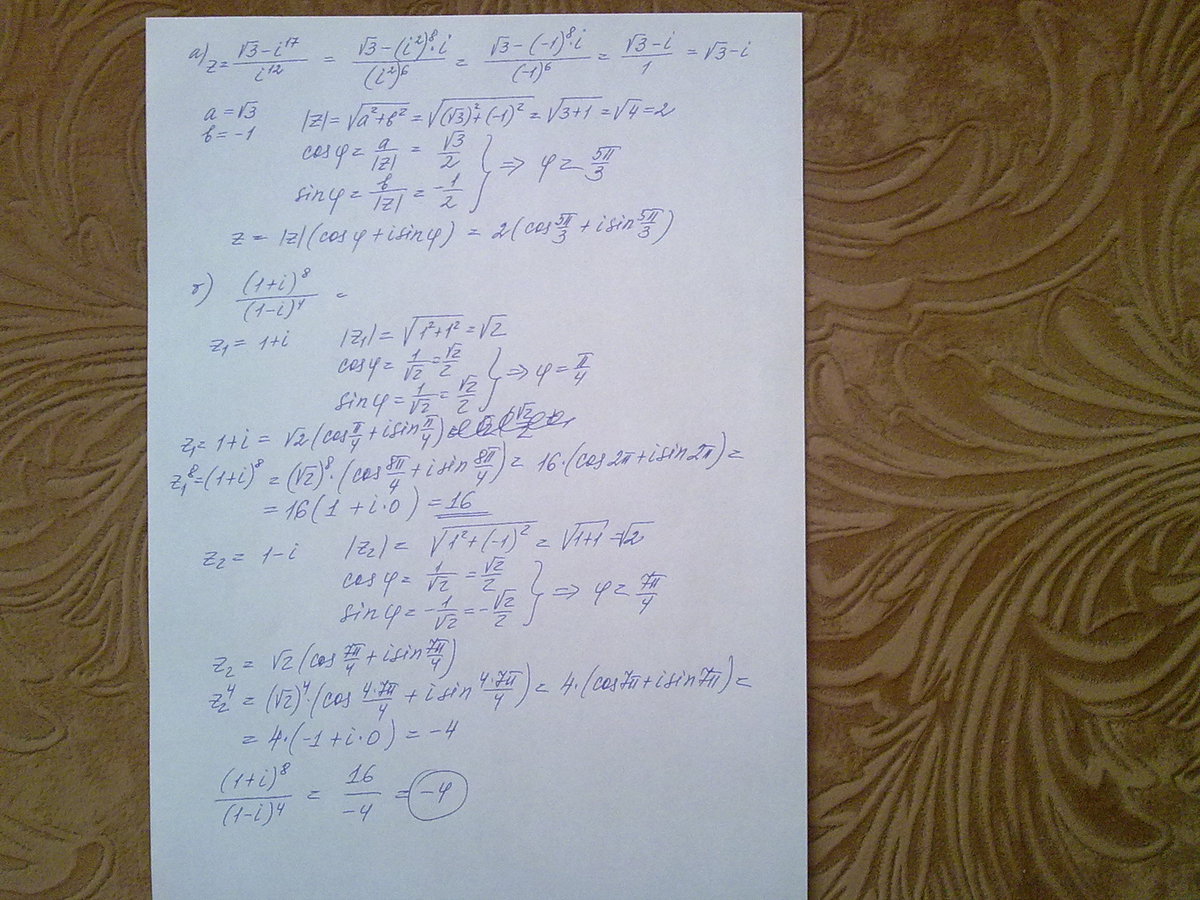 а) z = (√3 − i¹⁷)/i¹² = (√3 − (i²)⁸·i)/(i²)⁶ = (√3 − (−1)⁸·i)/(−1)⁶ = (√3 − i)/1 = √3 − i
a = √3
b = −1
|z| = √(a² + b²) = √((√3)² + (−1)²) = √(3+1) = √4 = 2
cos φ = a/|z| = √3/2
sin φ = b/|z| = −1/2
} ⇒ φ = 5π/3
z = |z|(cos φ + i sin φ) = 2(cos 5π/3 + i sin 5π/3)
б) (1+i)⁸/(1−i)⁴ =
z₁ = 1+i |z₁| = √(1² + 1²) = √2
cos φ = 1/√2 = √2/2
sin φ = 1/√2 = √2/2
} ⇒ φ = π/4
z₁ = 1+i = √2(cos π/4 + i sin π/4)
z₁⁸ = (1+i)⁸ = (√2)⁸·(cos 8π/4 + i sin 8π/4) = 16·(cos 2π + i sin 2π) =
= 16(1 + i·0) = 16
z₂ = 1−i |z₂| = √(1² + (−1)²) = √(1+1) = √2
cos φ = 1/√2 = √2/2
sin φ = −1/√2 = −√2/2
} ⇒ φ = 7π/4
z₂ = √2(cos 7π/4 + i sin 7π/4)
z₂⁴ = (√2)⁴·(cos 4·7π/4 + i sin 4·7π/4) = 4·(cos 7π + i sin 7π) =
= 4·(−1 + i·0) = −4
(1+i)⁸/(1−i)⁴ = 16/−4 = −4